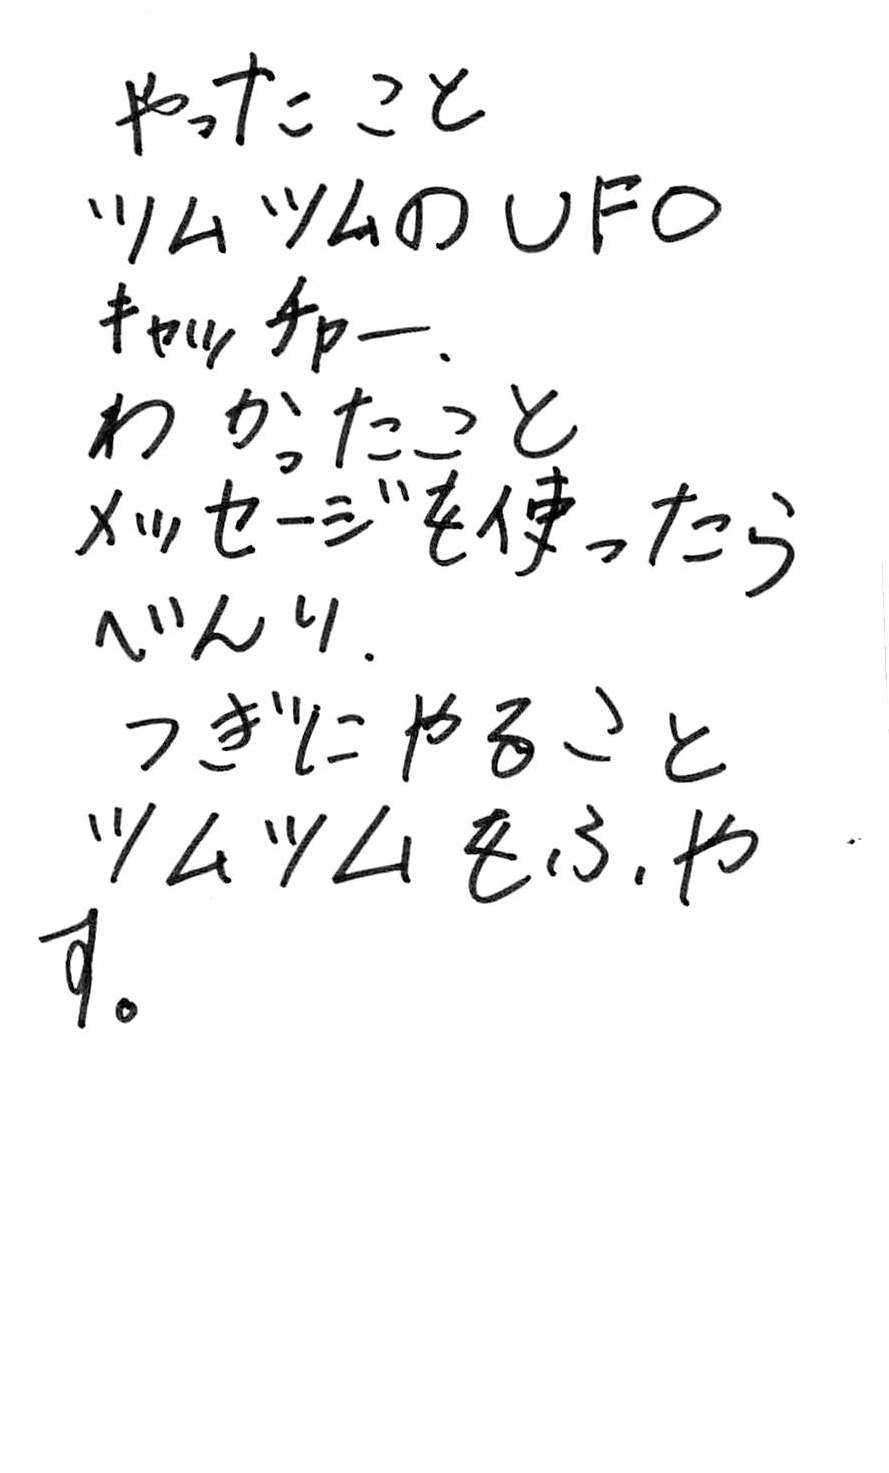 やったこと
ツムツムのUFO
キャッチャー.
わかったこと
メッセージを使ったら
べんり.
つぎにやること
ツムツムをふや
す。